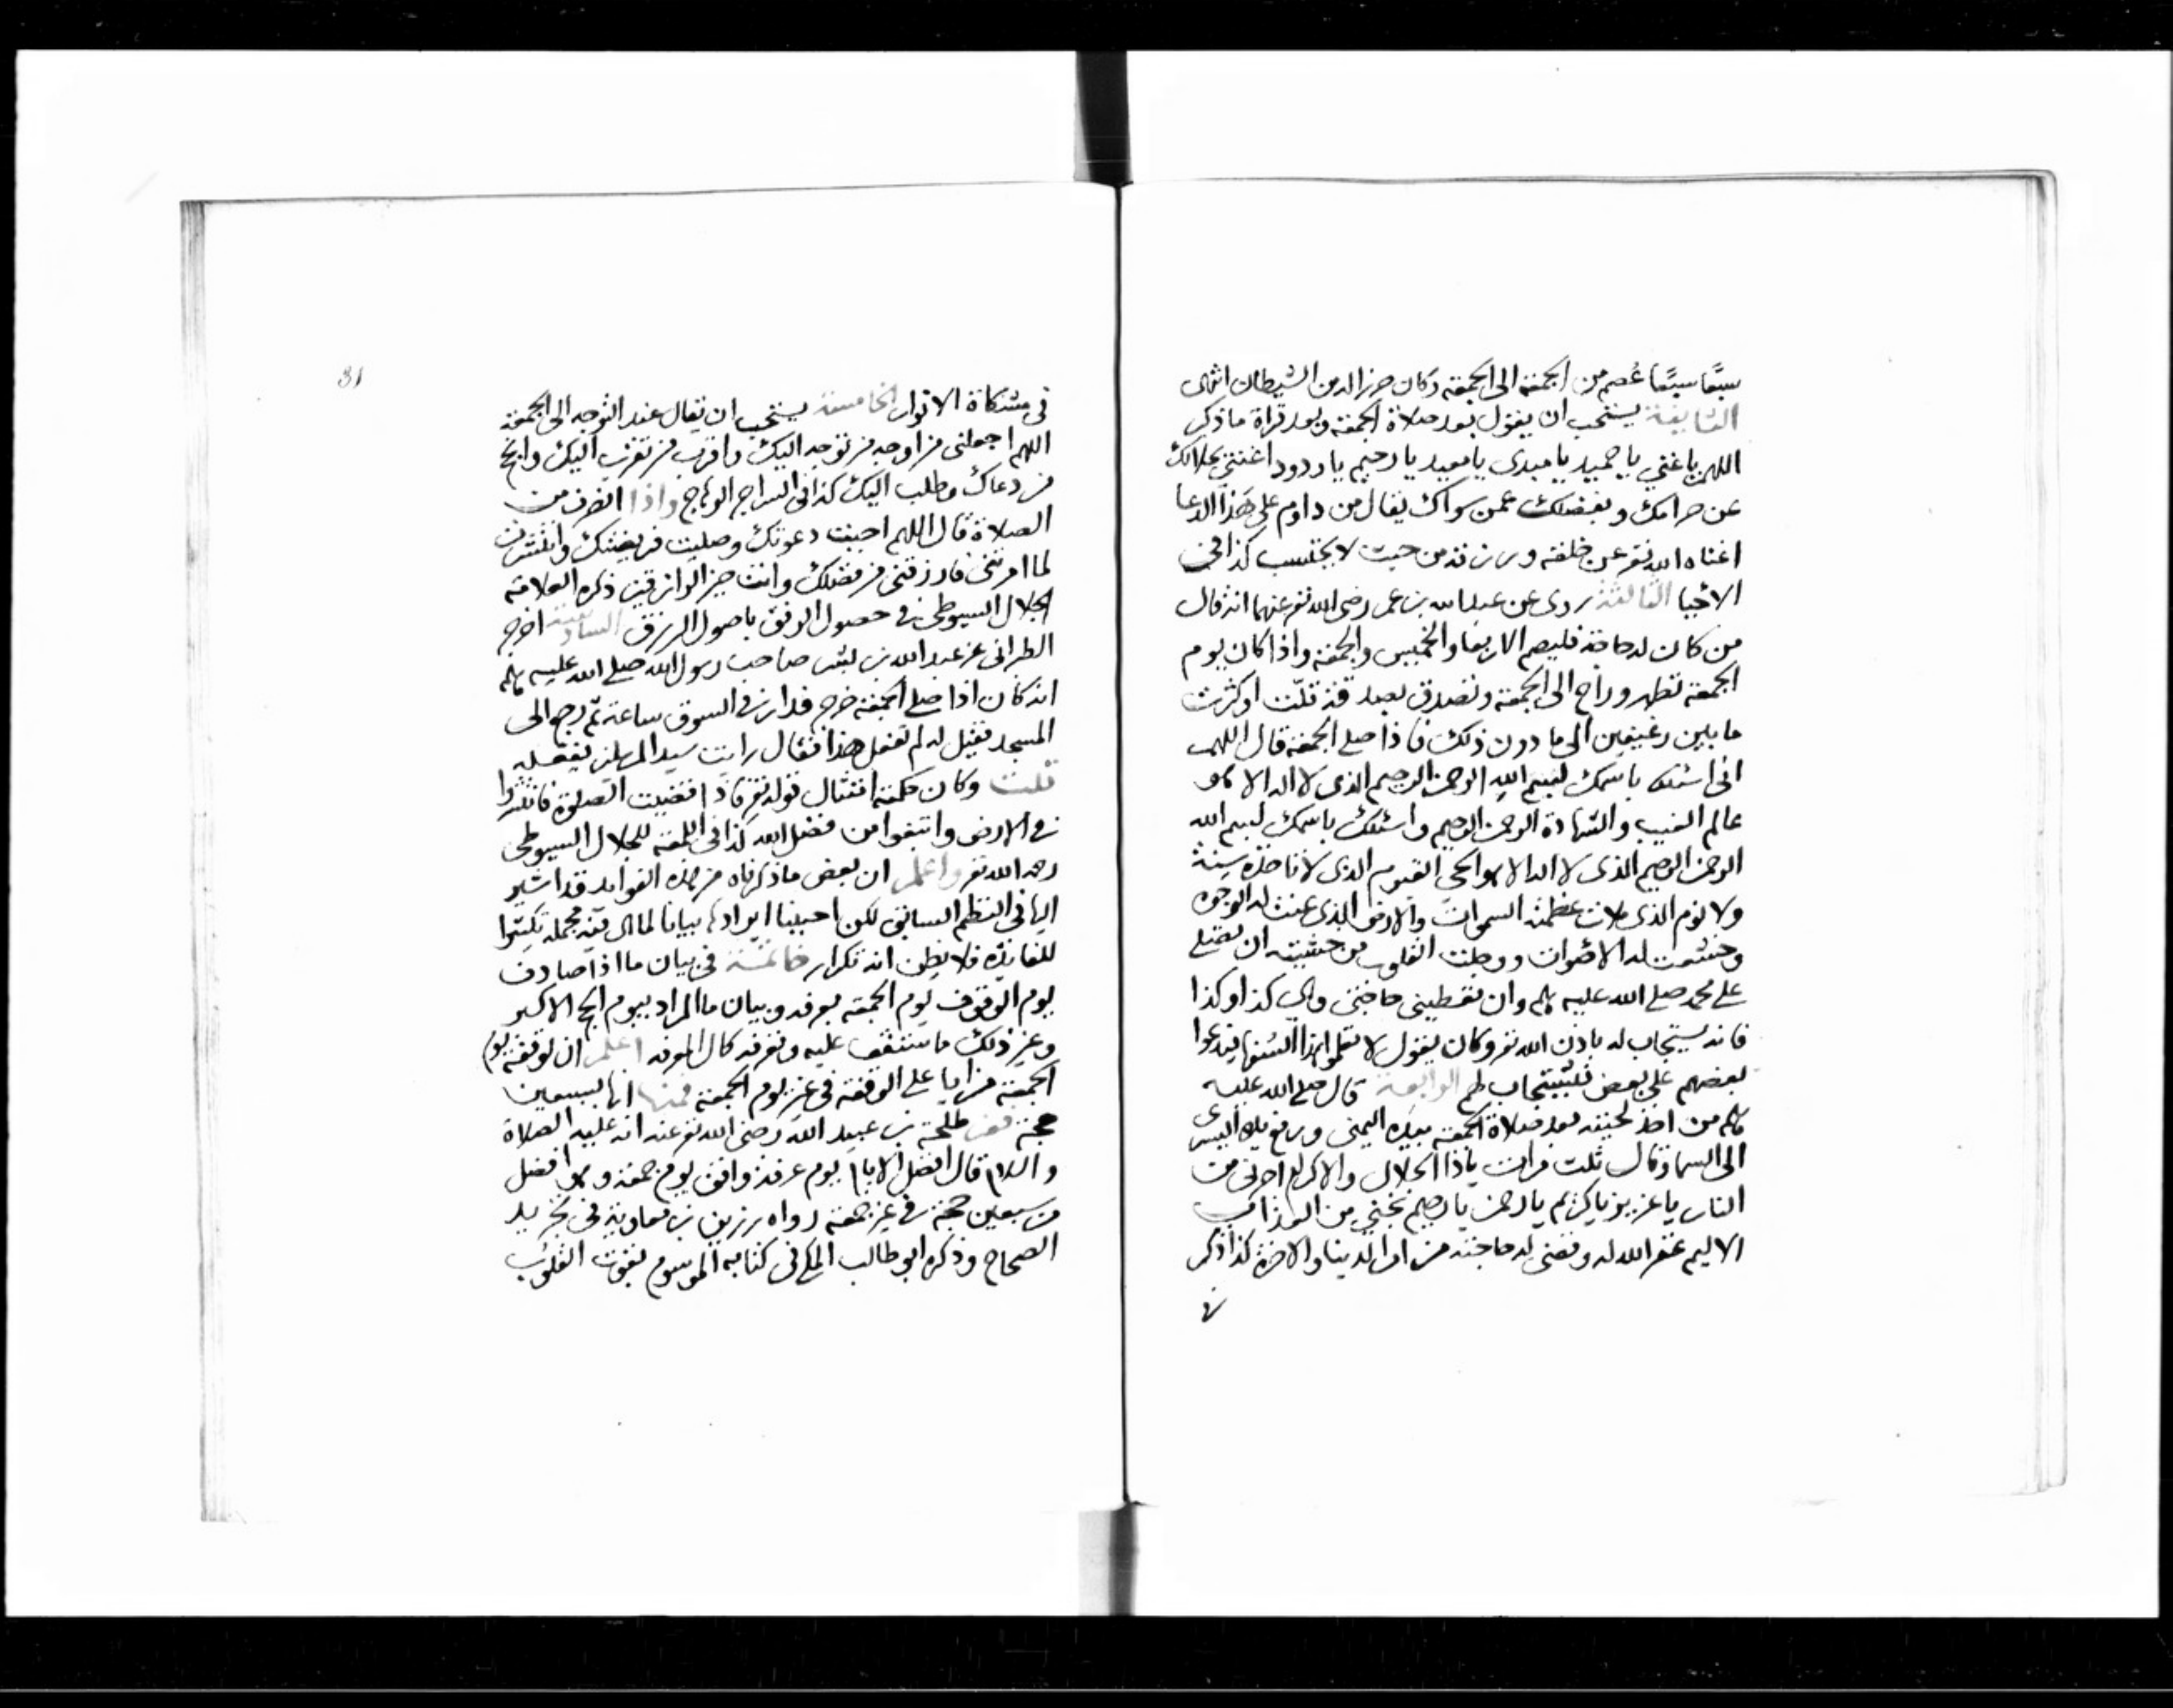 سبعًا سبعًا عُصم من الجمعة الى الجمعة وكان حرزا له من الشيطان انتهى
الثانية يستحب ان يقول بعد صلاة الجمعة وبعد قراة ما ذكر
اللهم يا غني يا حميد يا مبدى يا معيد يا رحيم يا ودود اغنني بحلالك
عن حرامك وبفضلك عمن سواك يقال من داوم على هذا الدعا
اغناه الله تعر عن خلقه ورزقه من حيث لا يحتسب كذا في
الاحيا الثالثة روى عن عبد الله بن عمر رضى الله تعر عنهما انه قال
من كان له حاجة فليصم الاربعا والخميس والجمعة واذا كان يوم
الجمعة تطهر وراح الى الجمعة وتصدق بصدقة قلّت او كثرت
ما بين رغيفين الى ما دون ذلك فاذا صلى الجمعة قال اللهم
انى اسئلك باسمك لبسم الله الرحمن الرحيم الذى لا اله الا هو
عالم الغيب والشهادة الرحمن الرحيم واسئلك باسمك لبسم الله
الرحمن الرحيم الذى لا اله الا هو الحي القيوم الذى لا تاخذه سنة
ولا نوم الذى ملات عظمته السموات والارض الذى عنت له الوجوه
وخشعت له الاصوات ووجلت القلوب من خشيته ان تصلى
على محمد صلى الله عليه وسلم وان تعطيني حاجتى وهي كذا وكذا
فانه يستجاب له باذن الله تعر وكان يقول لا تعلموا هذا السفها فيدعوا
بعضهم على بعض فيستجاب لهم الرابعة قال صلى الله عليه
وسلم من اخذ لحيته بعد صلاة الجمعة بيده اليمنى ورفع يده اليسرى
الى السما وقال ثلث مرات يا ذا الجلال والاكرام اجرنى من
النار يا عزيز يا كريم يا رحمن يا رحيم نجني من العذاب
الاليم غفر الله له وقضى له حاجته من امر الدنيا والاخرة كذا ذكر
في
31
في مشكاة الانوار الخامسة يستحب ان يقال عند التوجه الى الجمعة
اللهم اجعلنى من اوجه من توجه اليك واقرب من تقرب اليك وانجح
من دعاك وطلب اليك كذا فى السراج الوهاج واذا انصرف من
الصلاة قال اللهم اجبت دعوتك وصليت فريضتك وانتشرت
لما امرتنى فارزقنى من فضلك وانت خير الرازقين ذكره العلامة
الجلال السيوطى في حصول الرفق باصول الرزق السادسة اخرج
الطبرانى عن عبد الله بن بسر صاحب رسول الله صلى الله عليه وسلم
انه كان اذا صلى الجمعة خرج فدار في السوق ساعة ثم رجع الى
المسجد فقيل له لم تفعل هذا فقال رايت سيد المرسلين يفعله
قلت وكان حكمته امتثال قوله تعر فاذا قضيت الصلوة فانتشروا
في الارض وابتغوا من فضل الله كذا فى اللمعة للجلال السيوطى
رحمه الله تعر واعلم ان بعض ما ذكرناه من هذه الفوايد قد اشير
اليها فى النظم السابق لكن احببنا ايرادها بيانا لما فيه مجمله تكثيرا
للفائدة فلا يظن انه تكرار خاتمة فى بيان ما اذا صادف
يوم الوقوف يوم الجمعة بعرفه وبيان ما المراد بيوم الحج الاكبر
وغير ذلك ما ستقف عليه وتعرفه كال المعرفه اعلم ان لوقفة يوم
الجمعة مزايا على الوقفة فى غير يوم الجمعة فمنها انها بسبعين
حجة فعن طلحة بن عبيد الله رضى الله تعر عنه انه عليه الصلاة
والسلام قال افضل الايام يوم عرفة وافق يوم جمعة وهو افضل
من سبعين حجة في غير جمعة رواه رزين بن معاوية في تجريد
الصحاح وذكره ابو طالب المكى فى كتابه الموسوم بقوت القلوب